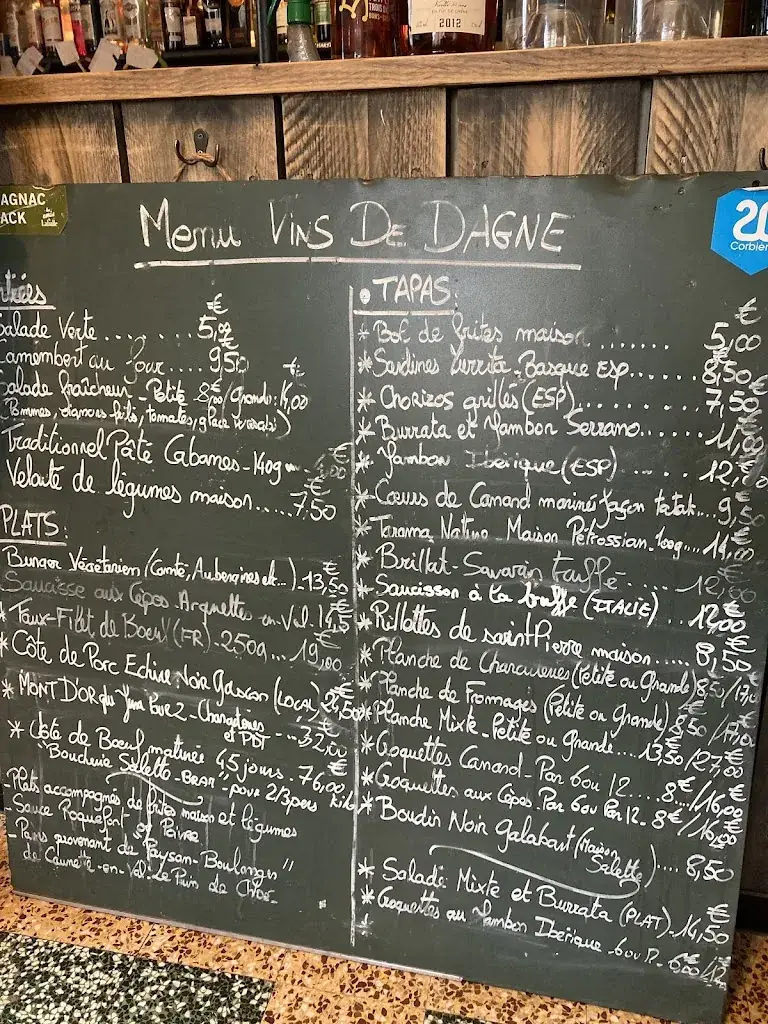 2012
AGNAC
ACK
20
Corbièr
Menu VINS DE DAGNE
Salade Verte ........ 5,00 €
Camembert au four .... 9,50
Salade fraîcheur - Petite 8€00/Grande: 14,00 €
(Pommes, oignons frits, tomates,
Traditionnel Pâté Cabanes - 140g
Velouté de légumes maison ..... 7.50 €
PLATS:
Burger Végétarien (Comté, Aubergines etc...) - 13,50 €
Saucisse aux Cèpes - Arquettes-en-Val. 14,5
* Faux-Filet de Boeuf (FR) - 250g ... 19,00 €
* Côte de Porc Echine Noir Gascon (LOCAL)
* MONT D'OR du Jura Pour 2 - Charcuteries et PDT ... 32,00 €
* Côte de Boeuf maturée 45 jours - 76,00 € kilo
"Boucherie Salette - BRAM" - pour 2/3 pers
- Plats accompagnés de frites maison et légumes
- Sauce Roquefort et Poivre
- Pains provenant de "Paysan-Boulanger"
de Caunette-en-Val. Le Pain de Chloé
• TAPAS: €
* Bol de frites maison ....... 5,00
* Sardines Zurrita - Basque ESP ...... 8,50 €
* Chorizos grillés (ESP) ........ 7,50 €
* Burrata et Jambon Serrano ...... 11,00 €
* Jambon Ibérique (ESP) ..... 12,00 €
* Coeurs de Canard mariné façon tataki ... 9,50 €
* Tarama Nature - Maison Petrossian - 100g .... 14,00 €
* Brillat-Savarin truffé ..... 12,00 €
* Saucisson à la truffe (ITALIE) .. 12,00
* Rillettes de saint Pierre maison ..... 8,50 €
* Planche de Charcuteries (Petite ou Grande) 8,50/17,00 €
* Planche de Fromages (Petite ou Grande) 8,50/17,00 €
* Planche Mixte - Petite ou Grande ... 13,50/27,00 €
* Croquettes Canard - Par 6 ou 12 .... 8€/16,00 €
* Croquettes aux Cèpes - Par 6 ou Par 12 - 8€/16,00 €
* Boudin Noir Galabart (Maison Salette) .... 8,50
* Salade Mixte et Burrata (PLAT) - 14,50 €
* Croquettes au Jambon Ibérique - 6 ou 12 - 6,00/12